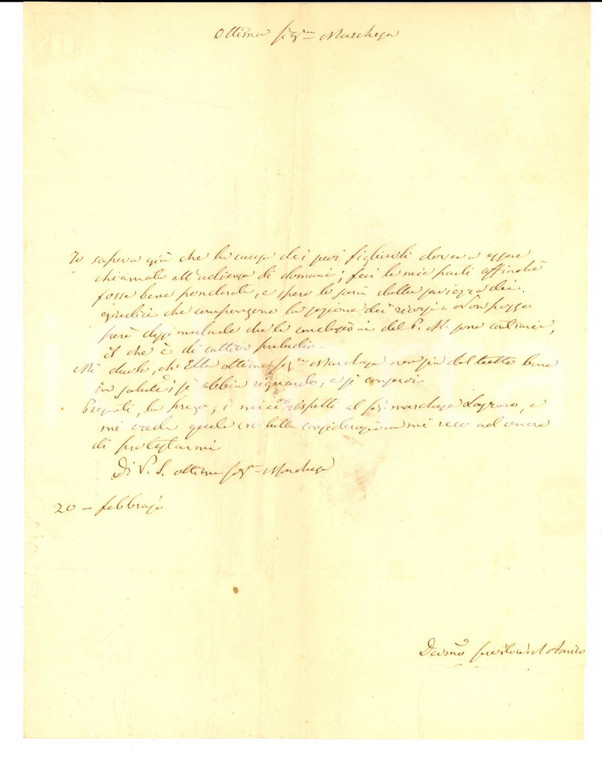 Ottima Sig.ra Marchesa
Io sapeva già che la causa dei suoi figliuoli doveva essere
chiamata all'udienza di domani; feci le mie parti affinchè
fosse bene ponderata, e spero lo sarà dalla saviezza dei
giudici che compongono la sezione dei ricorsi. Non posso
però dissimularle che le conclusioni del P. M. sono contrarie,
il che è di cattivo preludio.
Mi duole, che Ella ottima Sig.ra Marchesa non sia del tutto bene
in salute; si abbia riguardo, e si conservi.
la prego, i miei rispetti al Sig. marchese e
mi creda quale con tutta considerazione mi reco ad onore
di protestarmi
Di V. S. ottima Sig.ra Marchesa
20 - febbrajo
Devmo